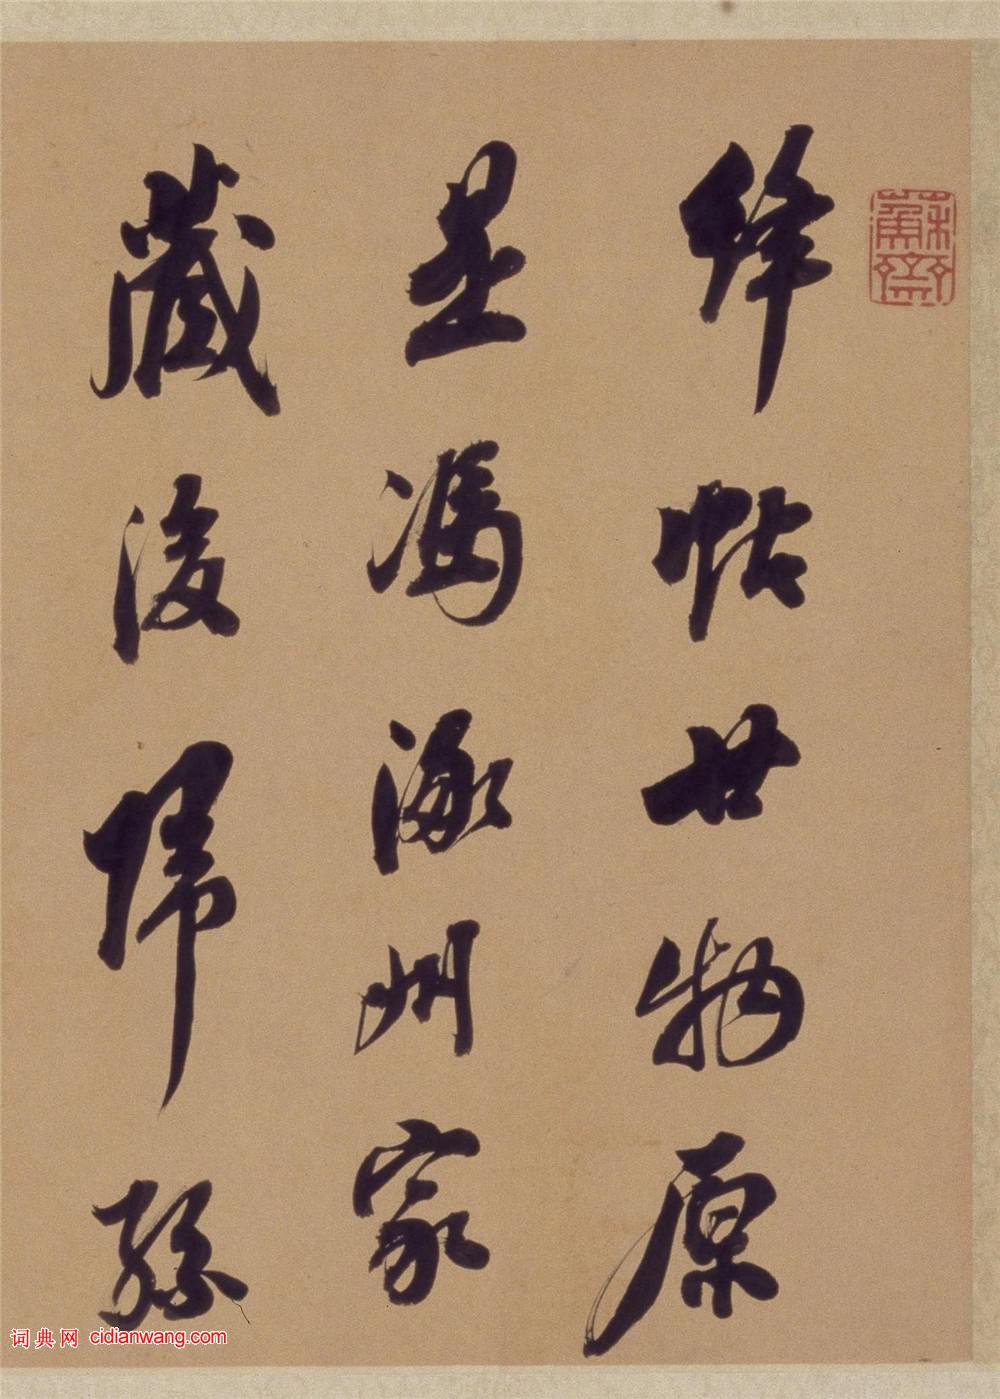 蘇齋
絳帖廿物原
是馮涿州家
藏後歸孫
词典网 cidianwang.com